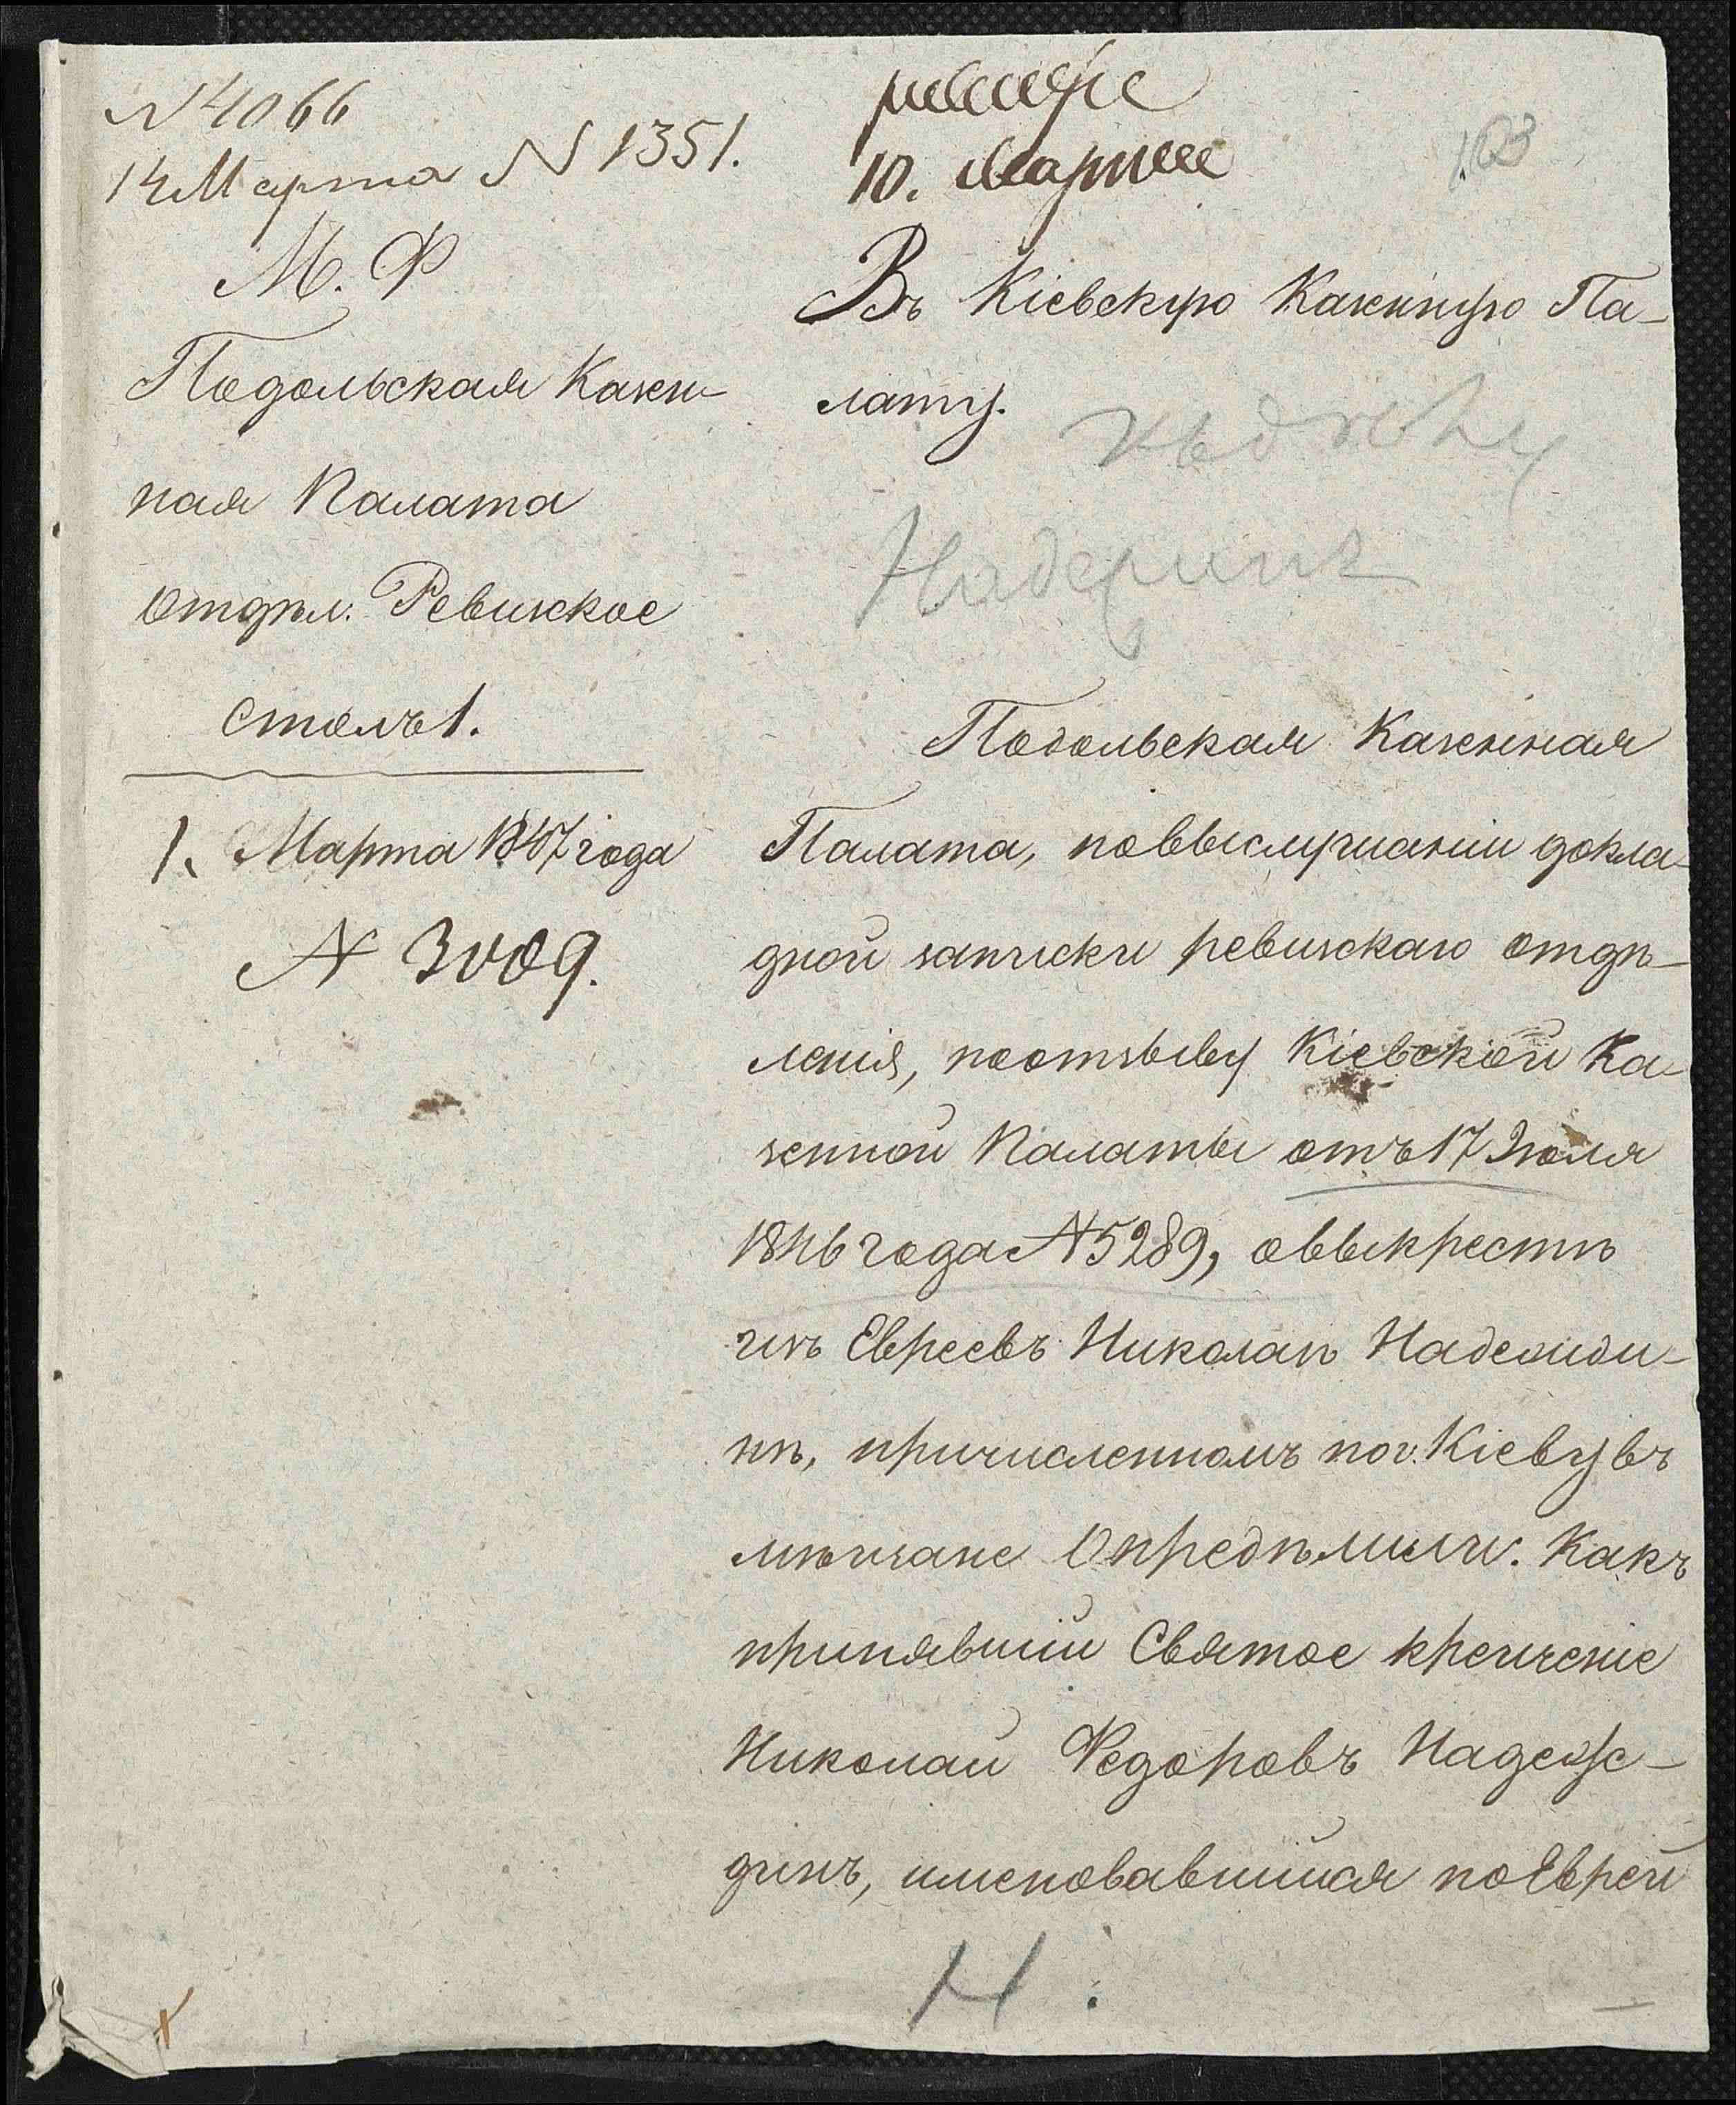 N 4066
14 Марта N 1351.
М. Ф
Подольская Казен-
ная Палата
Отдѣл. Ревизское
столъ 1.
1. Марта 1847 года
N 3009.
10. Марта
103
Въ Кіевскую Казенную Па-
лату.
къ дѣлу
Подольская Казенная
Палата, по выслушаніи докла-
дной записки ревизскаго отдѣ-
ленія, по отзыву Кіевской Ка-
зенной Палаты отъ 17 Іюля
1846 года N 5289, о выкрестѣ
изъ Евреевъ Николаѣ Надежди-
нѣ, причисленномъ по г. Кіеву въ
мѣщане Опредѣлили. Какъ
принявшій Святое крещеніе
Николай Федоровъ Надеж-
динъ, именовавшийся по Еврей
Н.